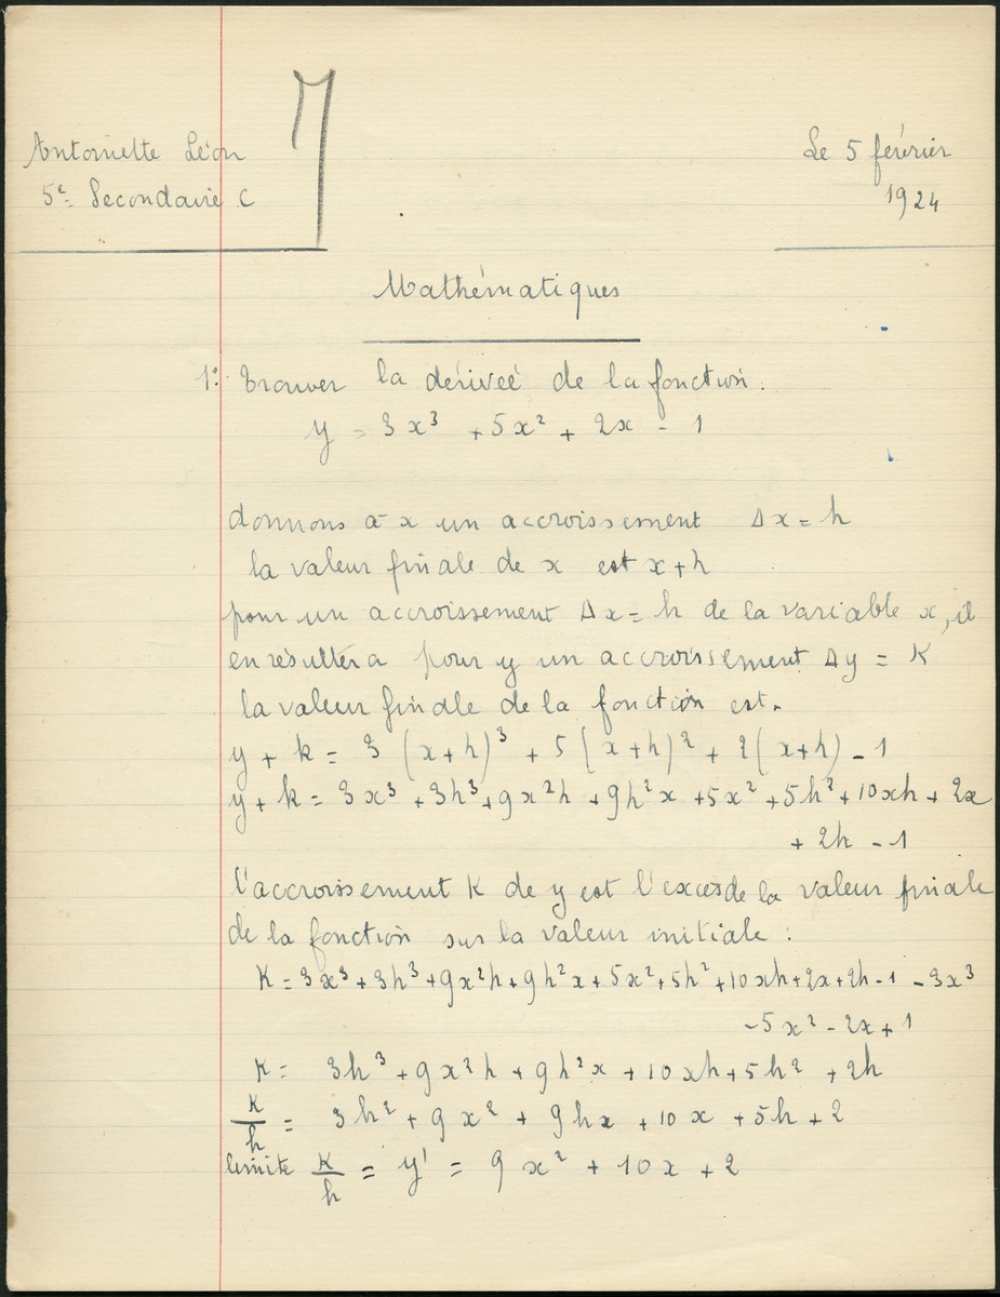 Antoinette Léon
Le 5 février
5e Secondaire C
1924
Mathématiques
1° Trouver la dérivée de la fonction.
y = 3x³ + 5x² + 2x - 1
donnons à x un accroissement Δx = h
la valeur finale de x est x+h
pour un accroissement Δx = h de la variable x, il
en résultera pour y un accroissement Δy = K
la valeur finale de la fonction est.
y + k = 3 (x+h)³ + 5 (x+h)² + 2(x+h) - 1
y + k = 3x³ + 3h³ + 9x²h + 9h²x + 5x² + 5h² + 10xh + 2x
+ 2h - 1
l'accroissement K de y est l'excès de la valeur finale
de la fonction sur la valeur initiale :
K = 3x³ + 3h³ + 9x²h + 9h²x + 5x² + 5h² + 10xh + 2x + 2h - 1 - 3x³
- 5x² - 2x + 1
K = 3h³ + 9x²h + 9h²x + 10xh + 5h² + 2h
K/h = 3h² + 9x² + 9hx + 10x + 5h + 2
limite K/h = y' = 9x² + 10x + 2